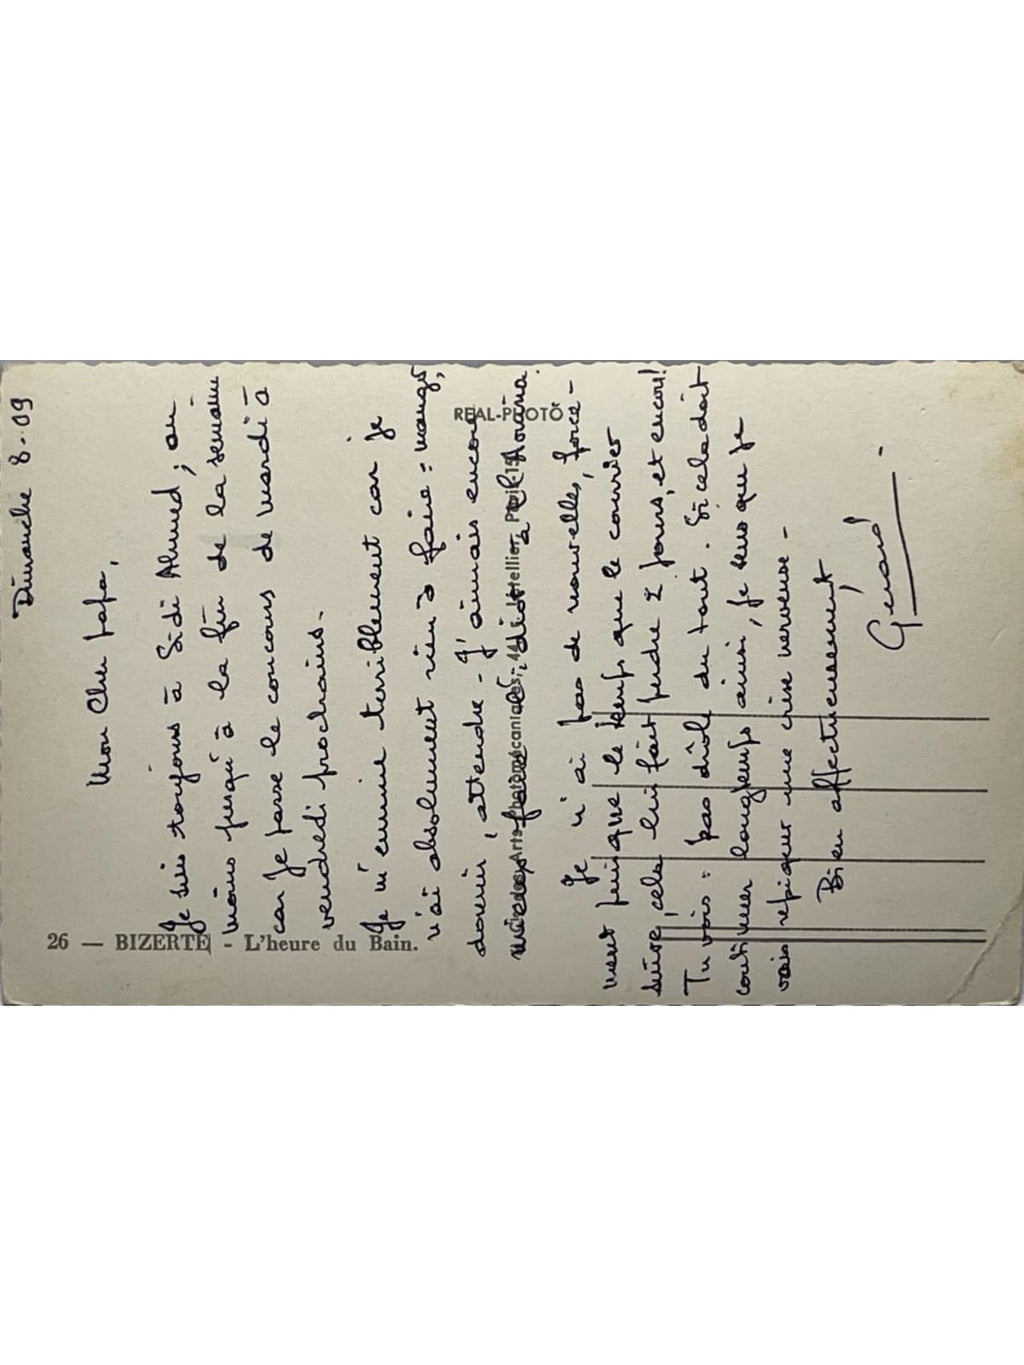 Dimanche 8-09
Mon Cher papa,
Je suis toujours à Sidi Ahmed ; au
moins jusqu'à la fin de la semaine
car je passe le concours de mardi à
vendredi prochains.
Je m'ennuie terriblement car je
n'ai absolument rien à faire : manger,
dormir, attendre - J'aimais encore
mieux faire à El Aouina.
Je n'ai pas de nouvelles, force-
ment puisque le temps que le courrier
suive, cela lui fait perdre 2 jours, et encore !
Tu vois : pas drôle du tout. Si cela doit
continuer longtemps ainsi, je sens que je
vais repiquer une crise nerveuse -
Bien affectueusement
Gérard
26 — BIZERTE - L'heure du Bain.
REAL-PHOTO
Arts Photomécaniques, 44, Létellier, Paris-15